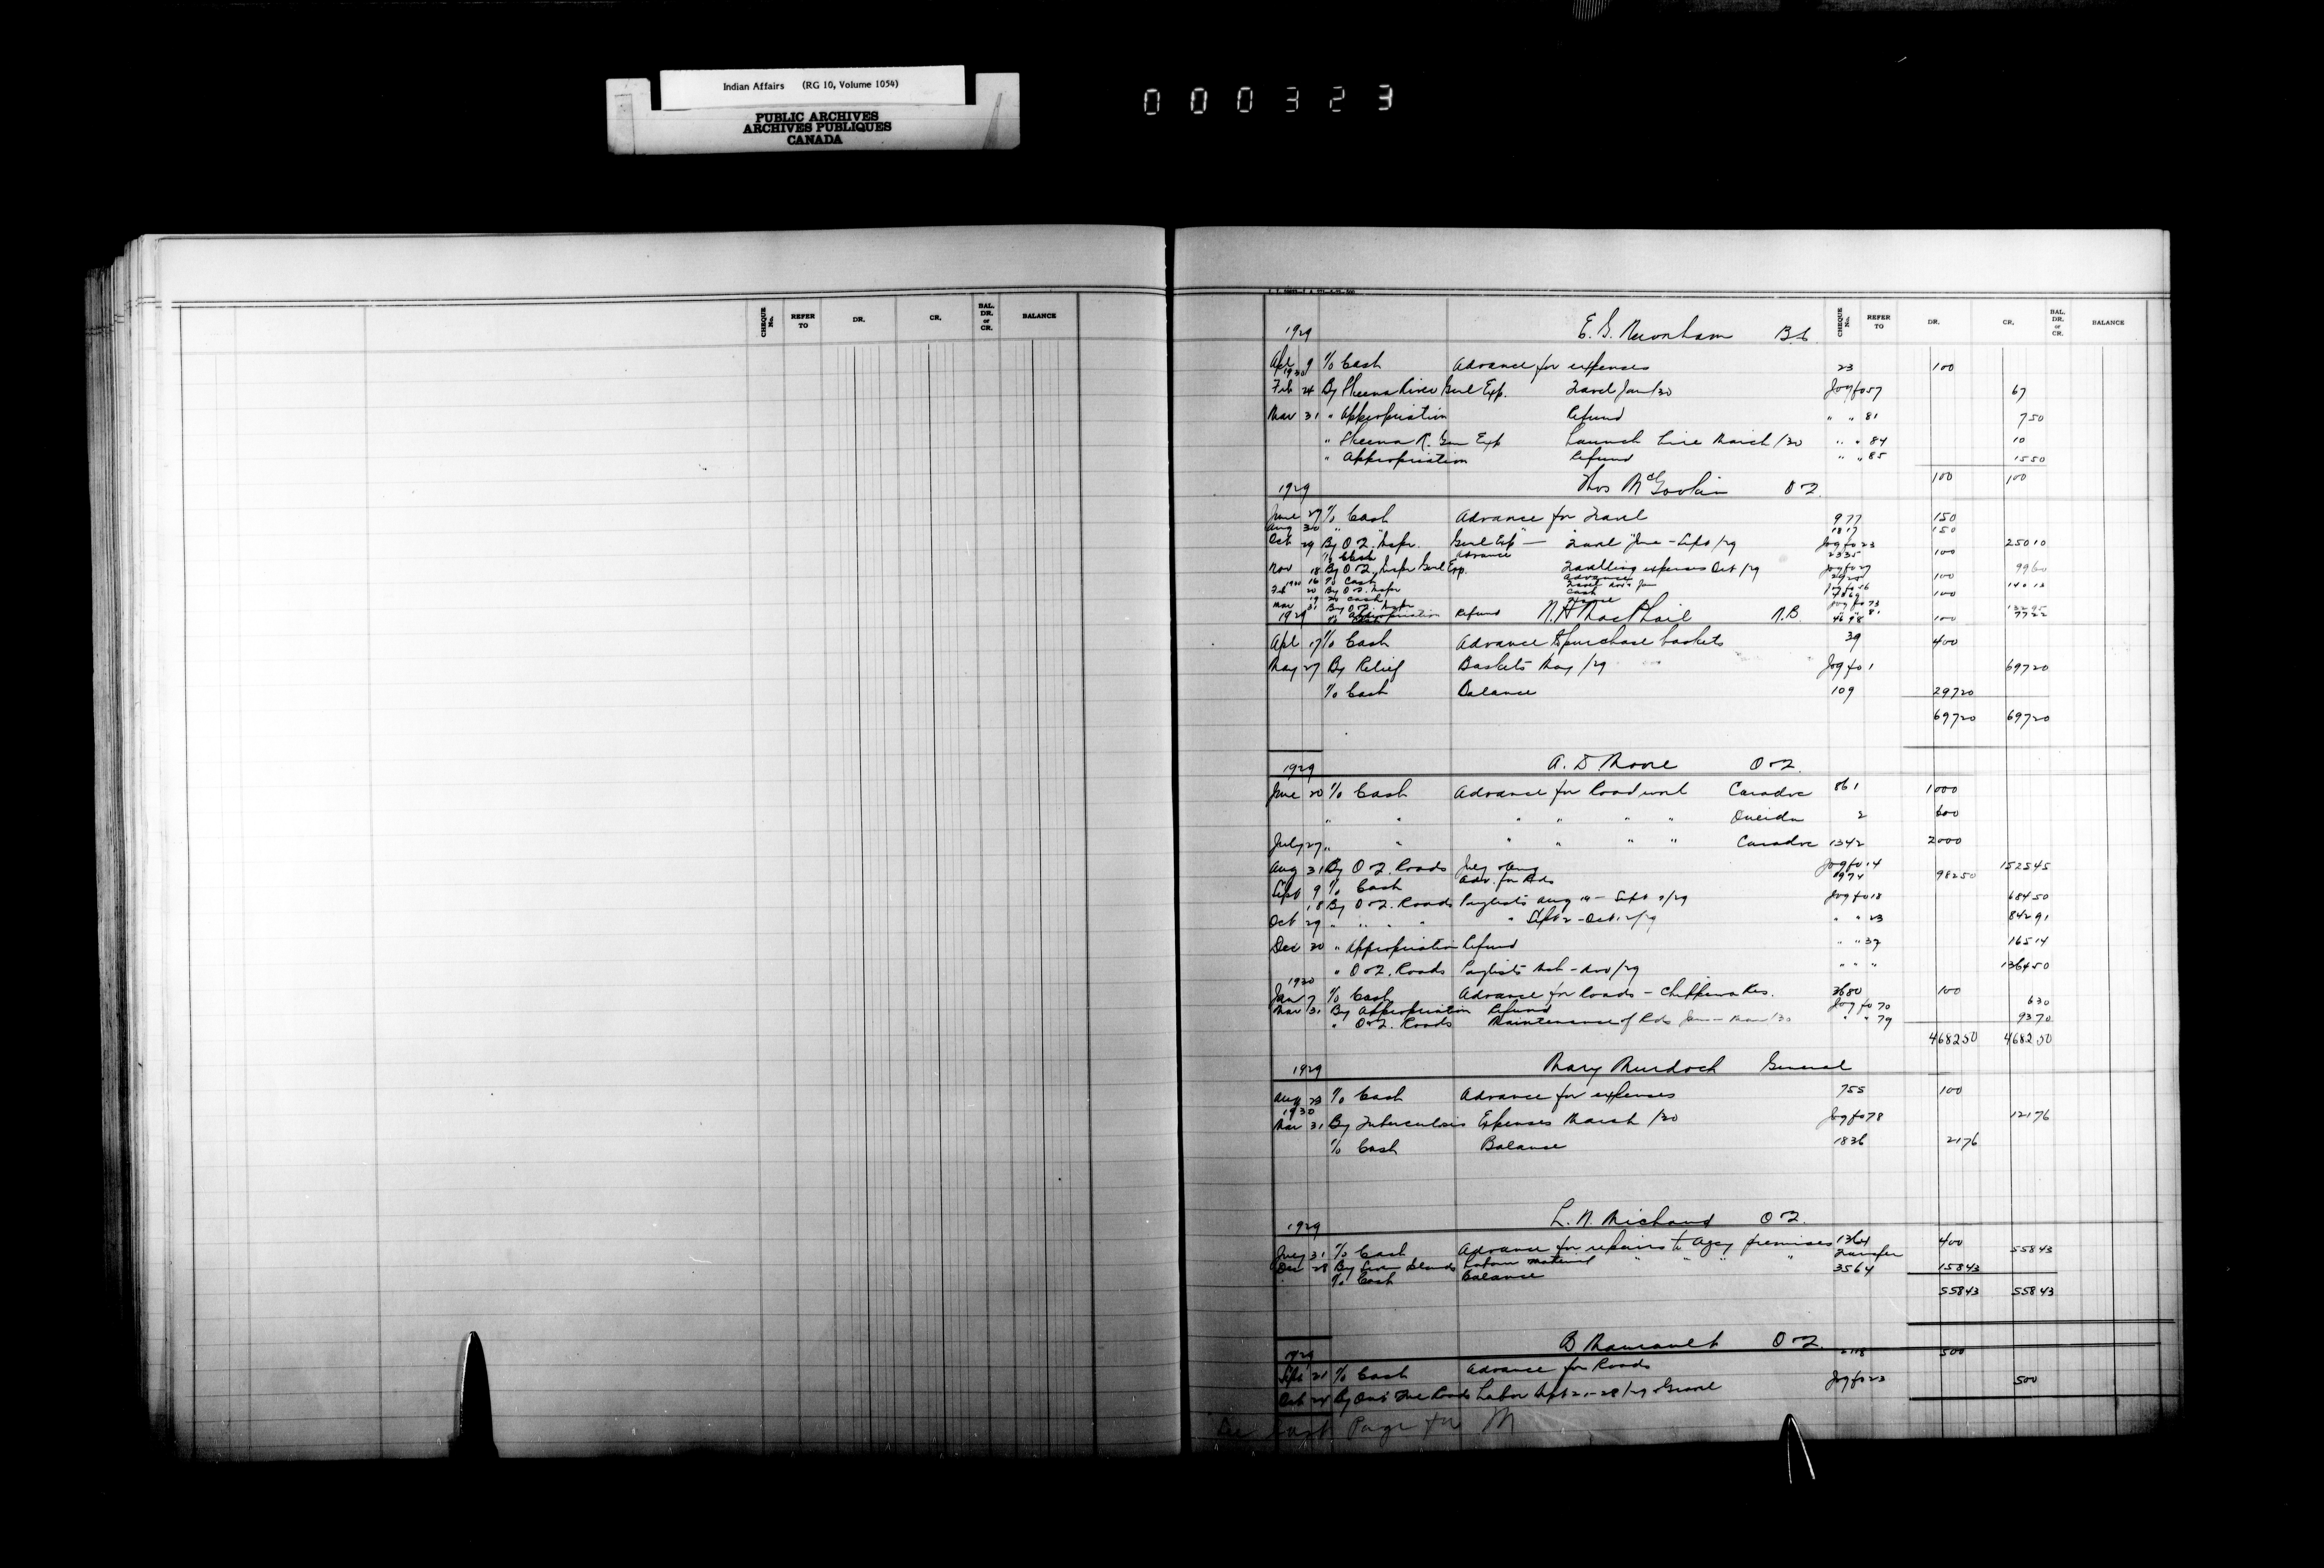 Indian Affairs (RG 10, Volume 1054)
PUBLIC ARCHIVES
ARCHIVES PUBLIQUES
CANADA
000323
CHEQUE No. REFER TO DR. CR. BAL. DR. or CR. BALANCE
CHEQUE No. REFER TO DR. CR. BAL. DR. or CR. BALANCE
1929 E. G. Newnham B.C.
Apl 9 To Cash Advance for expenses 23 100
1930
Feb 24 By Skeena River Genl Exp. Travel Jan/30 Jog fo 57 67
Mar 31 " Appropriation Refund " " 81 7 50
" Skeena R. Gen Exp Launch hire March/30 " " 84 10
" Appropriation Refund " " 85 15 50
100 100
1929 Thos McGookin
June 27 To Cash Advance for Travel 977 150
Aug 30 " " 1817 150
Oct 29 By Inspr. Genl Exp — Travel June - Sept/29 Jog fo 23 250 10
To Cash Advance 2335 100
Nov 18 By Inspr Genl Exp. Travelling expenses Oct/29 Jog fo 27 99 60
16 To Cash Advance 100
Feb 20 By Inspr
Mar 19 To Cash 100
31 By Inspr Jog fo 73
Appropriation Refund " " 81 77 22
4698 100
1929 N. H. MacPhail N.B.
Apl 17 To Cash Advance to purchase baskets 39 400
May 27 By Relief Baskets May/29 Jog fo 1 697 20
To Cash Balance 109 297 20
697 20 697 20
1929 A. D. Moore
June 20 To Cash Advance for Road work Caradoc 861 1000
" " " " " " Oneida 2 600
July 27 " " " " " " Caradoc 1342 2000
Aug 31 By Roads July & Aug Jog fo 14 1525 45
Sept 9 To Cash Adv. for Rds 1974 982 50
18 By Roads Paylists Aug - Sept /29 Jog fo 18 684 50
Oct 29 " " " " " Sept 2 - Oct /29 " " 23 842 91
Dec 30 " Appropriation Refund " " 39 165 14
" Roads Paylists - Nov/29 " " " 1364 50
1930
Jan 7 To Cash Advance for Roads - Chippewa Res. 3680 100
Mar 31 By Appropriation Refund Jog fo 70 6 30
" Roads Maintenance of Rds Jan - Mar/30 " " 79 93 70
4682 50 4682 50
1929 Mary Murdoch General
Aug 23 To Cash Advance for expenses 755 100
1930
Mar 31 By Tuberculosis Expenses March/30 Jog fo 78 121 76
To Cash Balance 1836 21 76
1929 L. N. Michaud
July 31 To Cash Advance for repairs to Agcy premises 1364 400
Dec 28 By Labour material " " " " Transfer 558 43
To Cash Balance 3564 158 43
558 43 558 43
1929
Sept 21 To Cash Advance for Roads 500
Oct 24 By Roads Labor Sept 21-28/29 Gravel Jog fo 23 500
See last Page for M